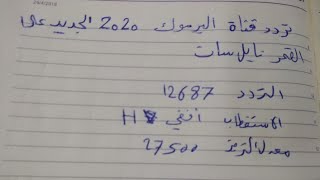 تردد قناة اليرموك 2020 الجديد على
القمر نايل سات
التردد 12687
الاستقطاب أفقي H
معدل الترميز 27500